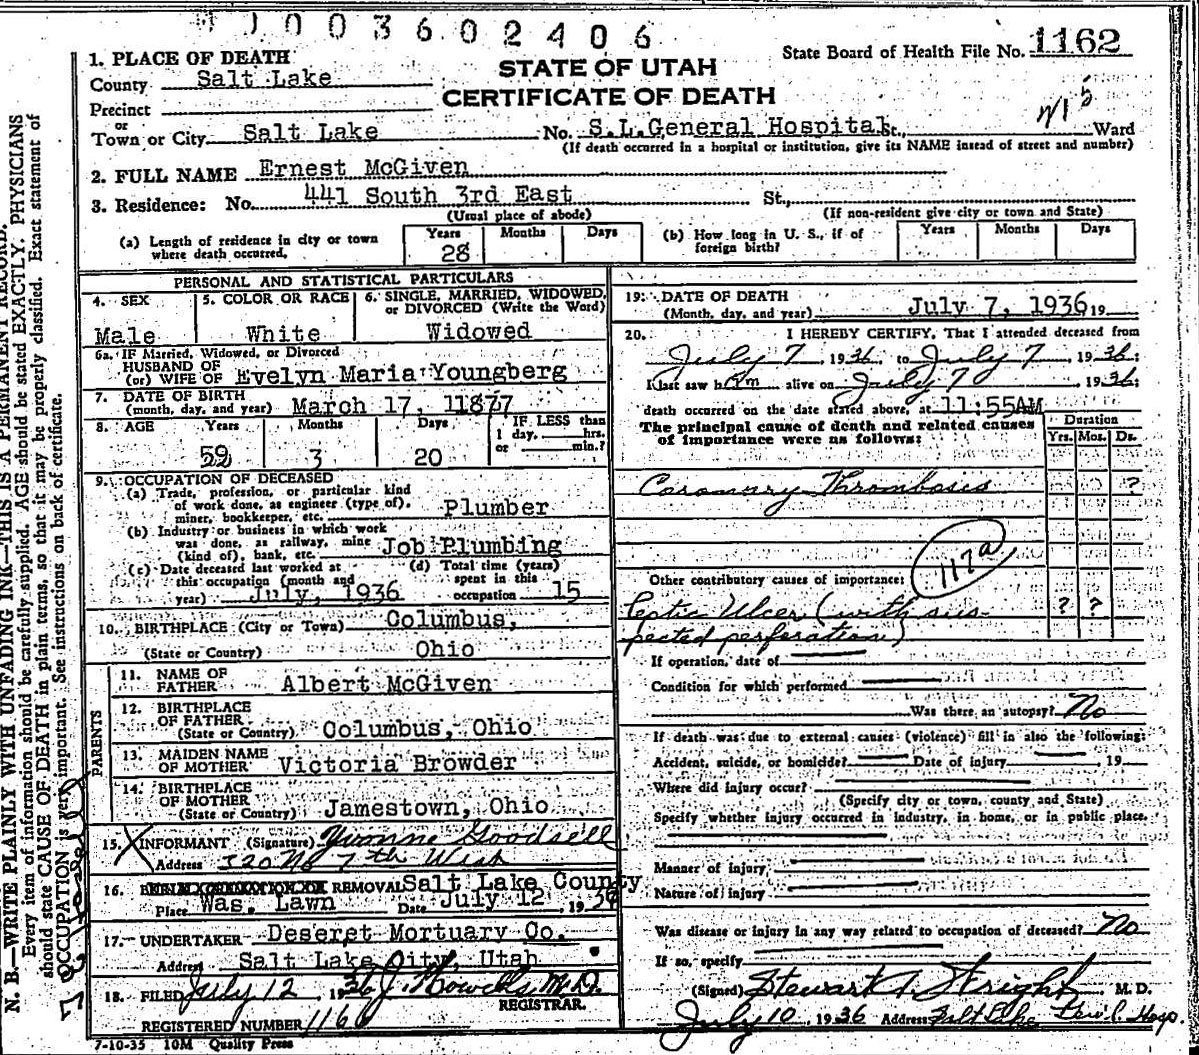 M J 0 0 3 6 0 2 4 0 6
State Board of Health File No. 1162
1. PLACE OF DEATH
STATE OF UTAH
County Salt Lake
CERTIFICATE OF DEATH
Precinct
or
Town or City Salt Lake No. S.L.General Hospital St., Ward
(If death occurred in a hospital or institution, give its NAME insead of street and number)
2. FULL NAME Ernest McGiven
3. Residence: No. 441 South 3rd East St.,
(Usual place of abode) (If non-resident give city or town and State)
(a) Length of residence in city or town where death occurred. Years 28 Months Days
(b) How long in U. S., if of foreign birth? Years Months Days
PERSONAL AND STATISTICAL PARTICULARS
4. SEX
Male
5. COLOR OR RACE
White
6. SINGLE, MARRIED, WIDOWED, or DIVORCED (Write the Word)
Widowed
6a. IF Married, Widowed, or Divorced
HUSBAND OF
(or) WIFE OF Evelyn Maria Youngberg
7. DATE OF BIRTH
(month, day, and year) March 17, 1877
8. AGE Years Months Days IF LESS than
1 day, hrs.
or min.?
59 3 20
9. OCCUPATION OF DECEASED
(a) Trade, profession, or particular kind
of work done, as engineer (type of),
miner, bookkeeper, etc. Plumber
(b) Industry or business in which work
was done, as railway, mine
(kind of), bank, etc. Job Plumbing
(c) Date deceased last worked at
this occupation (month and
year) July, 1936
(d) Total time (years)
spent in this
occupation 15
10. BIRTHPLACE (City or Town) Columbus,
(State or Country) Ohio
PARENTS
11. NAME OF
FATHER Albert McGiven
12. BIRTHPLACE
OF FATHER
(State or Country) Columbus, Ohio
13. MAIDEN NAME
OF MOTHER Victoria Browder
14. BIRTHPLACE
OF MOTHER
(State or Country) Jamestown, Ohio
15. INFORMANT (Signature) Yvonne Goodsell
Address 320 No 7th West
16. REMOVAL Salt Lake County
Place Was. Lawn Date July 12 1936
17. UNDERTAKER Deseret Mortuary Co.
Address Salt Lake City, Utah
18. FILED July 12 1936 J. Howells, M.D.
REGISTRAR.
REGISTERED NUMBER 1160
7-10-35 10M Quality Press
19. DATE OF DEATH
(Month, day, and year) July 7, 1936 19
20. I HEREBY CERTIFY, That I attended deceased from
July 7, 1936 to July 7, 1936
I last saw him alive on July 7, 1936
death occurred on the date stated above, at 11:55AM
The principal cause of death and related causes
of importance were as follows:
Duration
Yrs. Mos. Ds.
Coronary Thrombosis ?
117a
Other contributory causes of importance:
Peptic Ulcer (with sus- ? ?
pected perforation)
If operation, date of
Condition for which performed
Was there an autopsy? No
If death was due to external causes (violence) fill in also the following:
Accident, suicide, or homicide? Date of injury 19
Where did injury occur?
(Specify city or town, county and State)
Specify whether injury occurred in industry, in home, or in public place.
Manner of injury
Nature of injury
Was disease or injury in any way related to occupation of deceased? No
If so, specify
(Signed) Stewart A Wright M. D.
July 10, 1936 Address Salt Lake Gen'l Hosp.
N. B.—WRITE PLAINLY WITH UNFADING INK—THIS IS A PERMANENT RECORD.
Every item of information should be carefully supplied. AGE should be stated EXACTLY. PHYSICIANS
should state CAUSE OF DEATH in plain terms, so that it may be properly classified. Exact statement of
OCCUPATION is very important. See instructions on back of certificate.